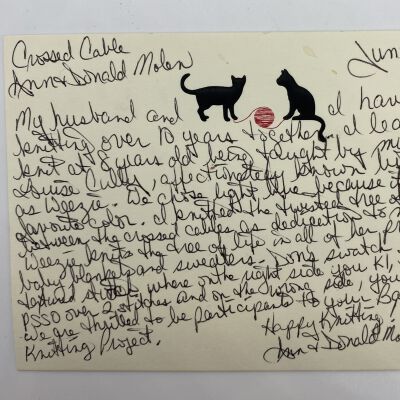 Crossed Cable
Ann & Donald Molen
Jun
My husband and I hav
knitting over 10 years together. I lea
knit at 8 years old being taught by my
Louise affectionately known
as Weezie. We chose light blue because it
favourite color. I knitted the twisted tree
between the crossed cables as dedication to
Weezie knits the tree of life in all of her pr
baby blankets and sweaters. Don's swatch
textured stitch where on the right side you K1,
PSSO over 2 stitches and on the wrong side, you
we are thrilled to be participants to your
Knitting Project.
Happy Knitting!
Ann & Donald Mo